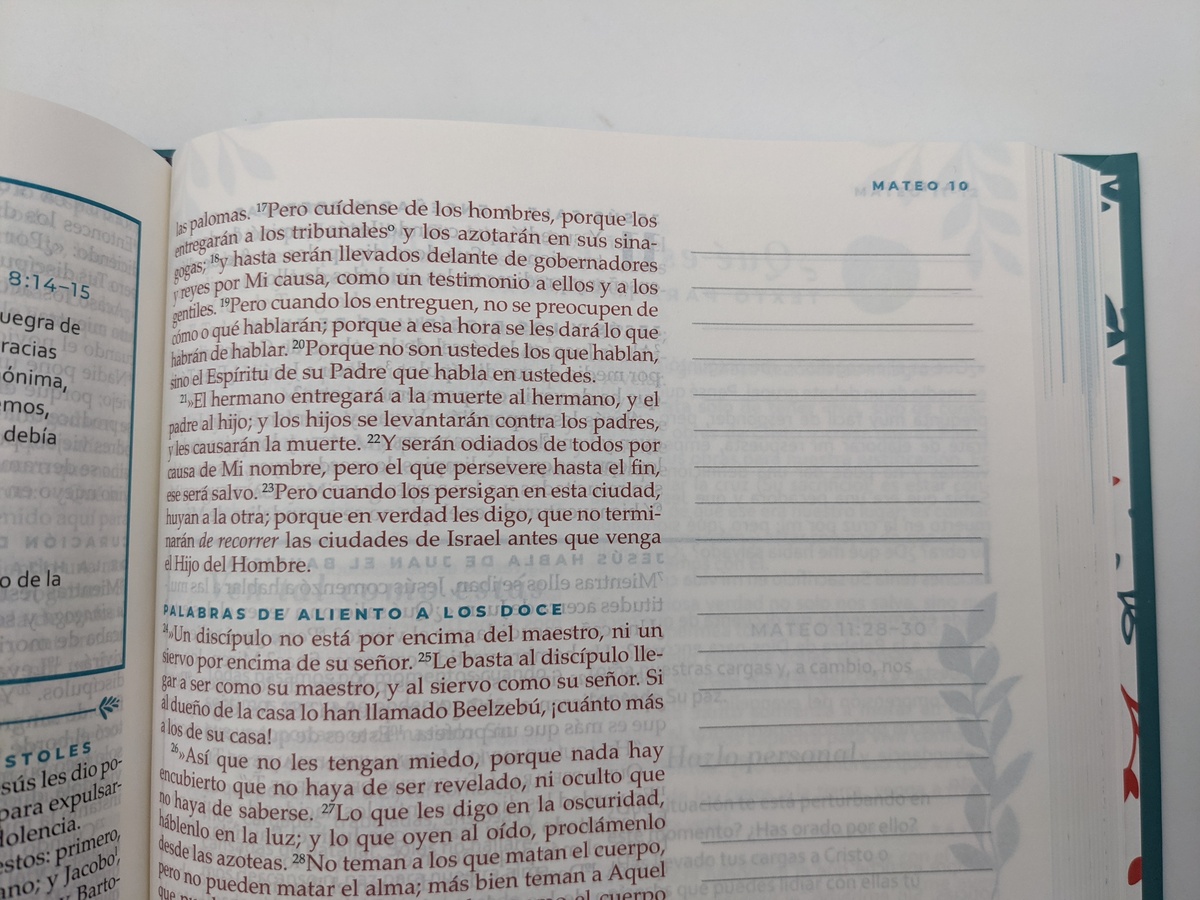 8:14-15
uegra de
racias
ónima,
emos,
debía
o de la
STOLES
sús les dio po-
para expulsar-
dolencia.
estos: primero,
ano; y Jacobo,
Barto-
MATEO 10
las palomas. 17Pero cuídense de los hombres, porque los
entregarán a los tribunalesº y los azotarán en sus sina-
gogas; 18y hasta serán llevados delante de gobernadores
y reyes por Mi causa, como un testimonio a ellos y a los
gentiles. 19Pero cuando los entreguen, no se preocupen de
cómo o qué hablarán; porque a esa hora se les dará lo que
habrán de hablar. 20Porque no son ustedes los que hablan,
sino el Espíritu de su Padre que habla en ustedes.
21»El hermano entregará a la muerte al hermano, y el
padre al hijo; y los hijos se levantarán contra los padres,
y les causarán la muerte. 22Y serán odiados de todos por
causa de Mi nombre, pero el que persevere hasta el fin,
ese será salvo. 23Pero cuando los persigan en esta ciudad,
huyan a la otra; porque en verdad les digo, que no termi-
narán de recorrer las ciudades de Israel antes que venga
el Hijo del Hombre.
PALABRAS DE ALIENTO A LOS DOCE
24»Un discípulo no está por encima del maestro, ni un
siervo por encima de su señor. 25Le basta al discípulo lle-
gar a ser como su maestro, y al siervo como su señor. Si
al dueño de la casa lo han llamado Beelzebú, ¡cuánto más
a los de su casa!
26»Así que no les tengan miedo, porque nada hay
encubierto que no haya de ser revelado, ni oculto que
no haya de saberse. 27Lo que les digo en la oscuridad,
háblenlo en la luz; y lo que oyen al oído, proclámenlo
desde las azoteas. 28No teman a los que matan el cuerpo,
pero no pueden matar el alma; más bien teman a Aquel
el cuerpo
MATEO 11:28-30
estras cargas y, a cambio, nos
Su paz.
Hazlo personal
tuación te está perturbando en
este momento? ¿Has orado por ello?
levado tus cargas a Cristo o
que puedes lidiar con ellas tú